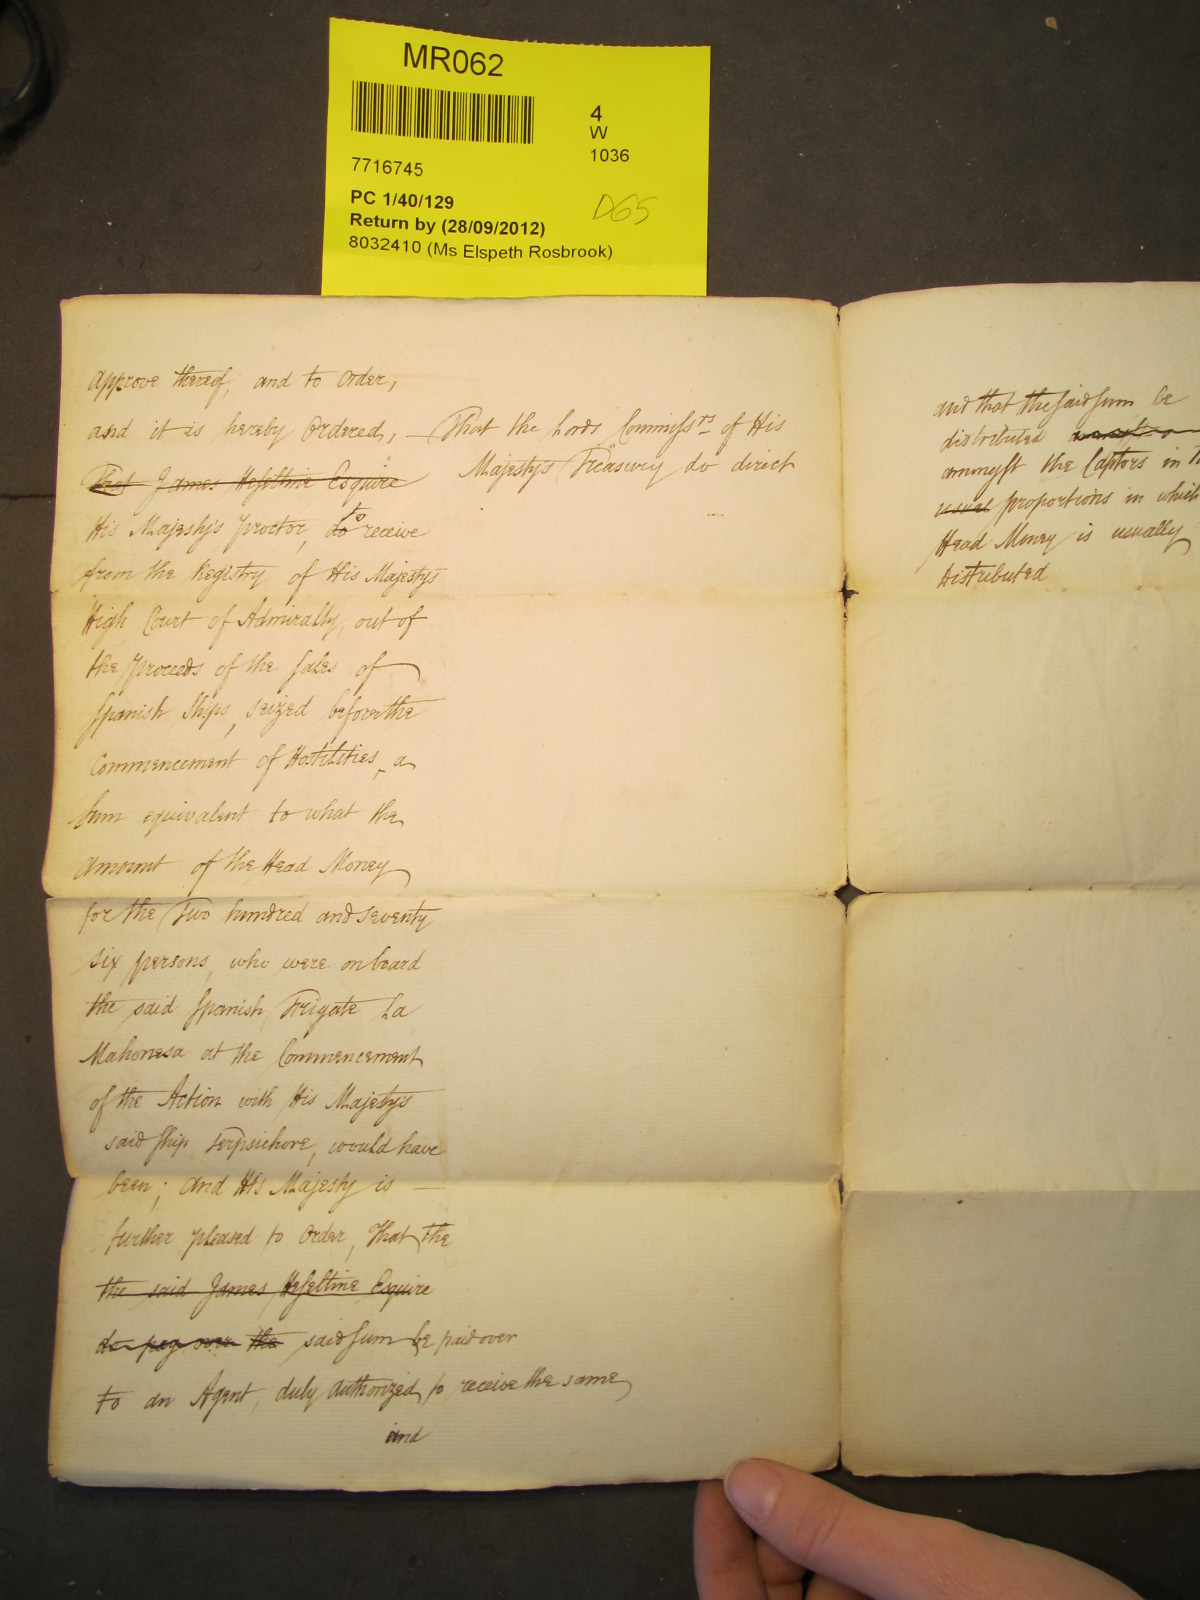 MR062
4
W
1036
7716745
PC 1/40/129
D65
Return by (28/09/2012)
8032410 (Ms Elspeth Rosbrook)
approve thereof, and to Order,
and it is hereby Ordered, — That the Lords Commissrs of His
Majesty's Treasury do direct
That James Heseltine Esquire
His Majesty's Proctor, do to receive
from the Registry of His Majesty's
High Court of Admiralty, out of
the Proceeds of the Sales of
Spanish Ships, seized before the
Commencement of Hostilities, a
Sum equivalent to what the
amount of the Head Money
for the Two hundred and seventy
six persons, who were on board
the said Spanish Frigate La
Mahonesa at the Commencement
of the Action with His Majesty's
said Ship Terpsichore, would have
been; and His Majesty is —
further pleased to Order, That the
the said James Heseltine Esquire
do pay over the said Sum be paid over
to an Agent, duly authorized to receive the same,
and
and that the said Sum be
distributed
amongst the Captors in
usual proportions in which
Head Money is usually
distributed